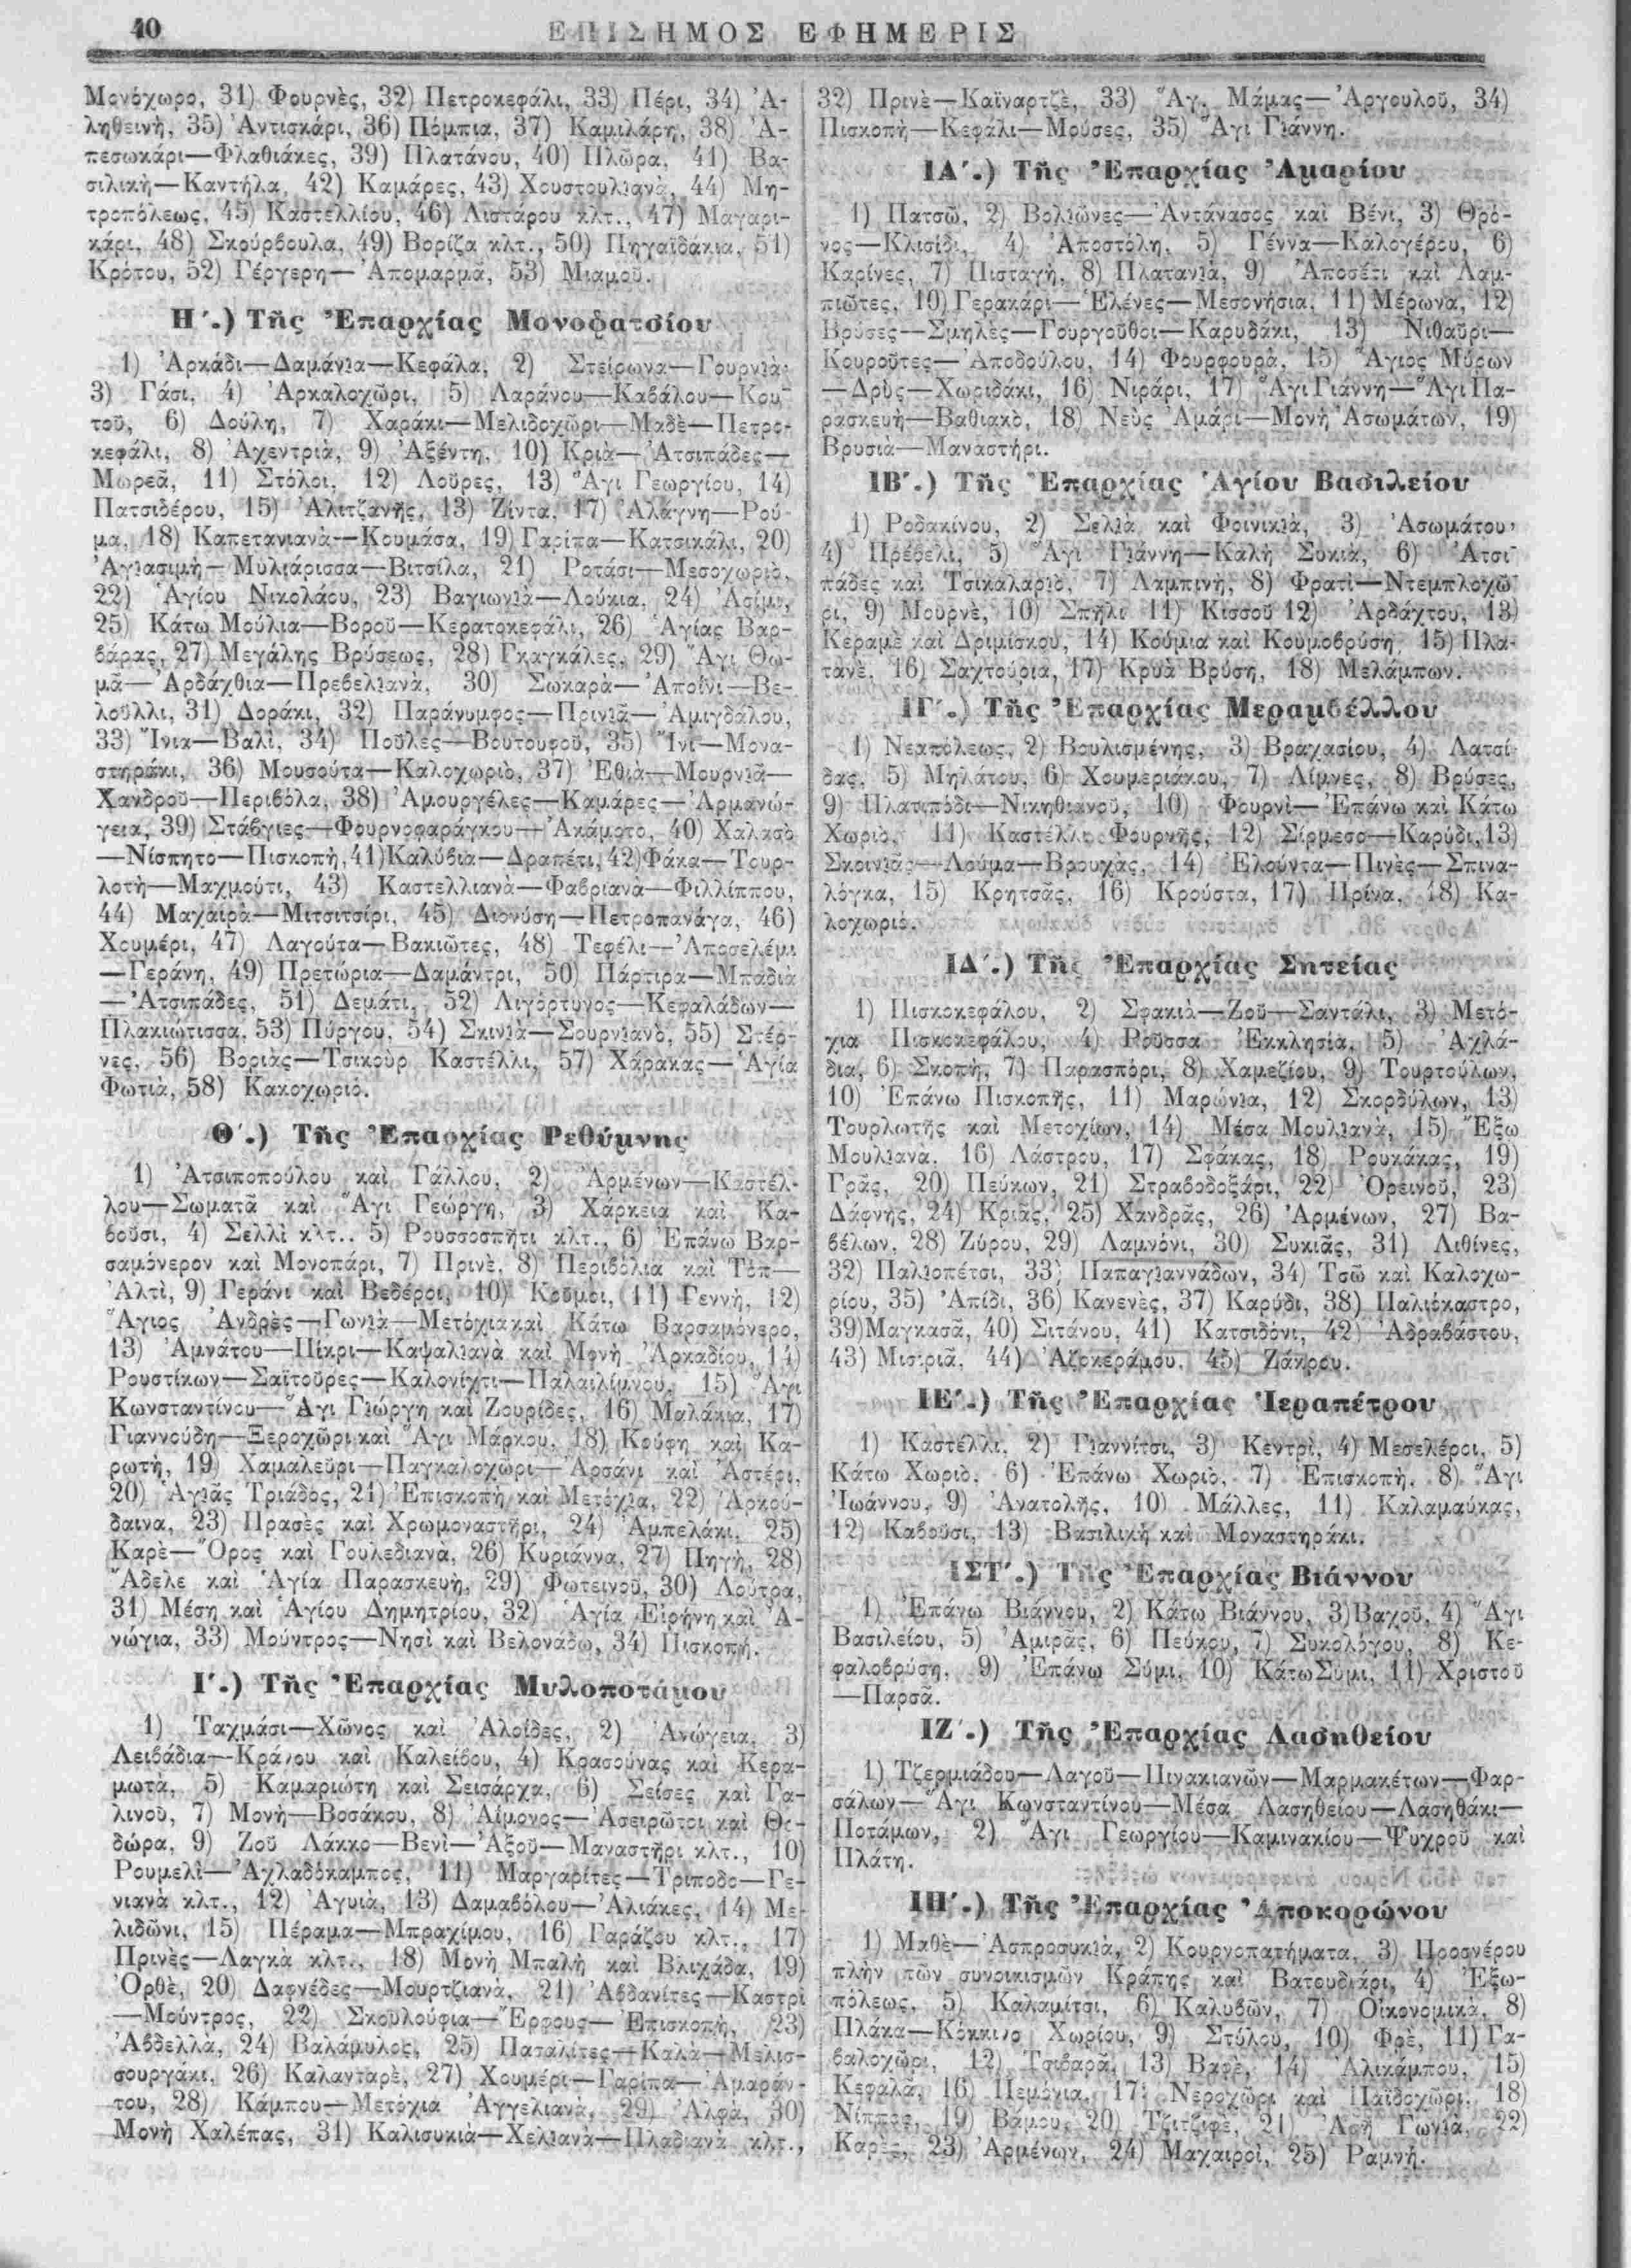 40
ΕΠΙΣΗΜΟΣ ΕΦΗΜΕΡΙΣ
Μονόχωρο, 31) Φουρνὲς, 32) Πετροκεφάλι, 33) Πέρι, 34) Ἀ-
ληθεινὴ, 35) Ἀντισκάρι, 36) Πόμπια, 37) Καμιλάρη, 38) Ἀ-
πεσωκάρι—Φλαθιάκες, 39) Πλατάνου, 40) Πλῶρα, 41) Βα-
σιλικὴ—Καντήλα, 42) Καμάρες, 43) Χουστουλιανὰ, 44) Μη-
τροπόλεως, 45) Καστελλίου, 46) Λιστάρου κλτ., 47) Μαγαρι-
κάρι, 48) Σκούρβουλα, 49) Βορίζα κλτ., 50) Πηγαϊδάκια, 51)
Κρότου, 52) Γέργερη—Ἀπομαρμᾶ, 53) Μιαμοῦ.
Η΄.) Τῆς Ἐπαρχίας Μονοφατσίου
1) Ἀρκάδι—Δαμάνια—Κεφάλα, 2) Στείρωνα—Γουρνιὰ·
3) Γάσι, 4) Ἀρκαλοχῶρι, 5) Λαράνου—Καβάλου—Κου-
τοῦ, 6) Δούλη, 7) Χαράκι—Μελιδοχῶρι—Μαδὲ—Πετρο-
κεφάλι, 8) Ἀχεντριὰ, 9) Ἀξέντη, 10) Κριὰ—Ἀτσιπάδες—
Μωρεᾶ, 11) Στόλοι, 12) Λοῦρες, 13) Ἅγι Γεωργίου, 14)
Πατσιδέρου, 15) Ἀλιτζανῆς, 13) Ζίντα, 17) Ἀλάγνη—Ρού-
μα, 18) Καπετανιανὰ—Κουμάσα, 19) Γαρίπα—Κατσικάλι, 20)
Ἁγιασιμὴ—Μυλιάρισσα—Βιτσίλα, 21) Ροτάσι—Μεσοχωριὸ,
22) Ἁγίου Νικολάου, 23) Βαγιωνιὰ—Λούκια, 24) Ἀσίμι,
25) Κάτω Μούλια—Βοροῦ—Κερατοκεφάλι, 26) Ἁγίας Βαρ-
βάρας, 27) Μεγάλης Βρύσεως, 28) Γκαγκάλες, 29) Ἅγι Θω-
μᾶ—Ἀρδάχθια—Πρεβελιανὰ, 30) Σωκαρὰ—Ἀποΐνι—Βε-
λοῦλλι, 31) Δοράκι, 32) Παράνυμφος—Πρινιᾶ—Ἀμιγδάλου,
33) Ἴνια—Βαλὶ, 34) Ποῦλες—Βουτουφοῦ, 35) Ἴνι—Μονα-
στηράκι, 36) Μουσούτα—Καλοχωριὸ, 37) Ἐθιὰ—Μουρνιᾶ—
Χανδροῦ—Περιβόλα, 38) Ἀμουργέλες—Καμάρες—Ἀρμανώ-
γεια, 39) Στάβγιες—Φουρνοφαράγκου—Ἀκάμοτο, 40) Χαλασὸ
—Νίσπητο—Πισκοπὴ, 41) Καλύβια—Δραπέτι, 42) Φάκα—Τουρ-
λοτὴ—Μαχμούτι, 43) Καστελλιανὰ—Φαβριανὰ—Φιλλίππου,
44) Μαχαίρὰ—Μιτσιτσίρι, 45) Διονύση—Πετροπανάγα, 46)
Χουμέρι, 47) Λαγούτα—Βακιῶτες, 48) Τεφέλι—Ἀποσελέμι
—Γεράνη, 49) Πρετώρια—Δαμάντρι, 50) Πάρτιρα—Μπαδιὰ
—Ἀτσιπάδες, 51) Δεμάτι, 52) Λιγόρτυνος—Κεφαλάδων—
Πλακιώτισσα, 53) Πύργου, 54) Σκινιὰ—Σουρνιανὸ, 55) Στέρ-
νες, 56) Βοριὰς—Τσικοὺρ Καστέλλι, 57) Χάρακας—Ἁγία
Φωτιὰ, 58) Κακοχωριό.
Θ΄.) Τῆς Ἐπαρχίας Ρεθύμνης
1) Ἀτσιποπούλου καὶ Γάλλου, 2) Ἀρμένων—Καστέλ-
λου—Σωματᾶ καὶ Ἅγι Γεώργη, 3) Χάρκεια καὶ Κα-
βοῦσι, 4) Σελλὶ κλτ., 5) Ρουσσοσπῆτι κλτ., 6) Ἐπάνω Βαρ-
σαμόνερον καὶ Μονοπάρι, 7) Πρινὲ, 8) Περιβόλια καὶ Τόπ—
Ἀλτὶ, 9) Γεράνι καὶ Βεδέροι, 10) Κοῦμοι, 11) Γεννὴ, 12)
Ἅγιος Ἀνδρὲς—Γωνιὰ—Μετόχια καὶ Κάτω Βαρσαμόνερο,
13) Ἀμνάτου—Πίκρι—Καψαλιανὰ καὶ Μονὴ Ἀρκαδίου, 14)
Ρουστίκων—Σαϊτοῦρες—Καλονίχτι—Παλαιλίμνου, 15) Ἅγι
Κωνσταντίνου—Ἅγι Γιώργη καὶ Ζουρίδες, 16) Μαλάκια, 17)
Γιαννούδη—Ξεροχῶρι καὶ Ἅγι Μάρκου, 18) Κούφη καὶ Κα-
ρωτὴ, 19) Χαμαλεῦρι—Παγκαλοχῶρι—Ἀρσάνι καὶ Ἀστέρι,
20) Ἁγιᾶς Τριάδος, 21) Ἐπισκοπὴ καὶ Μετόχια, 22) Ἀρκού-
δαινα, 23) Πρασὲς καὶ Χρωμοναστῆρι, 24) Ἀμπελάκι, 25)
Καρὲ—Ὄρος καὶ Γουλεδιανὰ, 26) Κυριάννα, 27) Πηγὴ, 28)
Ἄδελε καὶ Ἁγία Παρασκευὴ, 29) Φωτεινοῦ, 30) Λούτρα,
31) Μέση καὶ Ἁγίου Δημητρίου, 32) Ἁγία Εἰρήνη καὶ Ἀ-
νώγια, 33) Μούντρος—Νησὶ καὶ Βελοναδω, 34) Πισκοπή.
Ι΄.) Τῆς Ἐπαρχίας Μυλοποτάμου
1) Ταχμάσι—Χῶνος καὶ Ἀλοΐδες, 2) Ἀνώγεια, 3)
Λειβάδια—Κράνου καὶ Καλείβου, 4) Κρασούνας καὶ Κερα-
μωτὰ, 5) Καμαριώτη καὶ Σεισάρχα, 6) Σείσες καὶ Γα-
λινοῦ, 7) Μονὴ—Βοσάκου, 8) Ἀΐμονος—Ἀσειρῶτοι καὶ Θε-
δώρα, 9) Ζοῦ Λάκκο—Βενὶ—Ἀξοῦ—Μαναστῆρι κλτ., 10)
Ρουμελὶ—Ἀχλαδόκαμπος, 11) Μαργαρίτες—Τριποδο—Γε-
νιανὰ κλτ., 12) Ἀγυιὰ, 13) Δαμαβόλου—Ἀλιάκες, 14) Με-
λιδῶνι, 15) Πέραμα—Μπραχίμου, 16) Γαράζου κλτ., 17)
Πρινὲς—Λαγκὰ κλτ., 18) Μονὴ Μπαλὴ καὶ Βλιχάδα, 19)
Ὀρθὲ, 20) Δαφνέδες—Μουρτζιανὰ, 21) Ἀβδανίτες—Καστρὶ
—Μούντρος, 22) Σκουλούφια—Ἔρφους—Ἐπισκοπὴ, 23)
Ἀβδελλὰ, 24) Βαλάμυλος, 25) Πασαλίτες—Καλὰ—Μελισ-
σουργάκι, 26) Καλανταρὲ, 27) Χουμέρι—Γαρίπα—Ἀμαράν-
του, 28) Κάμπου—Μετόχια Ἀγγελιανὰ, 29) Ἀλφὰ, 30)
Μονὴ Χαλέπας, 31) Καλισυκιὰ—Χελιανὰ—Πλαδιανὰ κλτ.,
32) Πρινὲ—Καϊναρτζὲ, 33) Ἅγ. Μάμας—Ἀργουλοῦ, 34)
Πισκοπὴ—Κεφάλι—Μούσες, 35) Ἅγι Γιάννη.
ΙΑ΄.) Τῆς Ἐπαρχίας Ἀμαρίου
1) Πατσῶ, 2) Βολιῶνες—Ἀντάνασος καὶ Βένι, 3) Θρό-
νος—Κλισίδι, 4) Ἀποστόλη, 5) Γέννα—Καλογέρου, 6)
Καρίνες, 7) Πισταγὴ, 8) Πλατανιὰ, 9) Ἀποσέτι καὶ Λαμ-
πιῶτες, 10) Γερακάρι—Ἐλένες—Μεσονήσια, 11) Μέρωνα, 12)
Βρύσες—Σμηλὲς—Γουργοῦθοι—Καρυδάκι, 13) Νιθαῦρι—
Κουροῦτες—Ἀποδούλου, 14) Φουρφουρὰ, 15) Ἅγιος Μύρων
—Δρὺς—Χωριδάκι, 16) Νιράρι, 17) Ἅγι Γιάννη—Ἅγι Πα-
ρασκευὴ—Βαθιακὸ, 18) Νεὺς Ἀμάρι—Μονὴ Ἀσωμάτων, 19)
Βρυσιὰ—Μαναστήρι.
ΙΒ΄.) Τῆς Ἐπαρχίας Ἁγίου Βασιλείου
1) Ροδακίνου, 2) Σελιὰ καὶ Φοινικιὰ, 3) Ἀσωμάτου,
4) Πρέβελι, 5) Ἅγι Γιάννη—Καλὴ Συκιὰ, 6) Ἀτσι-
πάδες καὶ Τσικαλαριὸ, 7) Λαμπινὴ, 8) Φρατὶ—Ντεμπλοχῶ-
ρι, 9) Μουρνὲ, 10) Σπήλι 11) Κισσοῦ 12) Ἀρδάχτου, 13)
Κεραμὲ καὶ Δριμίσκου, 14) Κούμια καὶ Κουμοβρύση, 15) Πλα-
τανὲ, 16) Σαχτούρια, 17) Κρυὰ Βρύση, 18) Μελάμπων.
ΙΓ΄.) Τῆς Ἐπαρχίας Μεραμβέλλου
1) Νεαπόλεως, 2) Βουλισμένης, 3) Βραχασίου, 4) Λατσί-
δας, 5) Μηλάτου, 6) Χουμεριάκου, 7) Λίμνες, 8) Βρύσες,
9) Πλατιπόδι—Νικηθιανοῦ, 10) Φουρνὶ—Ἐπάνω καὶ Κάτω
Χωριὸ, 11) Καστέλλι Φουρνῆς, 12) Σίρμεσο—Καρύδι, 13)
Σκοινιᾶς—Λούμα—Βρουχᾶς, 14) Ἐλούντα—Πινὲς—Σπινα-
λόγκα, 15) Κρητσᾶς, 16) Κρούστα, 17) Πρίνα, 18) Κα-
λοχωριό.
ΙΔ΄.) Τῆς Ἐπαρχίας Σητείας
1) Πισκοκεφάλου, 2) Σφακιὰ—Ζοῦ—Σαντάλι, 3) Μετό-
χια Πισκοκεφάλου, 4) Ροῦσσα Ἐκκλησία, 5) Ἀχλά-
δια, 6) Σκοπὴ, 7) Παρασπόρι, 8) Χαμεζίου, 9) Τουρτούλων,
10) Ἐπάνω Πισκοπῆς, 11) Μαρώνια, 12) Σκορδύλων, 13)
Τουρλωτῆς καὶ Μετοχίων, 14) Μέσα Μουλιανὰ, 15) Ἔξω
Μουλιανὰ, 16) Λάστρου, 17) Σφάκας, 18) Ρουκάκας, 19)
Γρᾶς, 20) Πεύκων, 21) Στραβοδοξάρι, 22) Ὀρεινοῦ, 23)
Δάφνης, 24) Κριᾶς, 25) Χανδρᾶς, 26) Ἀρμένων, 27) Βα-
βέλων, 28) Ζύρου, 29) Λαμνόνι, 30) Συκιᾶς, 31) Λιθίνες,
32) Παλιοπέτσι, 33) Παπαγιαννάδων, 34) Τσῶ καὶ Καλοχω-
ρίου, 35) Ἀπίδι, 36) Κανενὲς, 37) Καρύδι, 38) Παλιόκαστρο,
39) Μαγκασᾶ, 40) Σιτάνου, 41) Κατσιδόνι, 42) Ἀδραβάστου,
43) Μισιριᾶ, 44) Ἀζοκεράμου, 45) Ζάκρου.
ΙΕ΄.) Τῆς Ἐπαρχίας Ἱεραπέτρου
1) Καστέλλι, 2) Γιαννίτσι, 3) Κεντρὶ, 4) Μεσελέροι, 5)
Κάτω Χωριὸ, 6) Ἐπάνω Χωριὸ, 7) Ἐπισκοπὴ, 8) Ἅγι
Ἰωάννου, 9) Ἀνατολῆς, 10) Μάλλες, 11) Καλαμαύκας,
12) Καβούσι, 13) Βασιλικὴ καὶ Μοναστηράκι.
ΙΣΤ΄.) Τῆς Ἐπαρχίας Βιάννου
1) Ἐπάνω Βιάννου, 2) Κάτω Βιάννου, 3) Βαχοῦ, 4) Ἅγι
Βασιλείου, 5) Ἀμιρᾶς, 6) Πεύκου, 7) Συκολόγου, 8) Κε-
φαλοβρύση, 9) Ἐπάνω Σύμι, 10) Κάτω Σύμι, 11) Χριστοῦ
—Παρσᾶ.
ΙΖ΄.) Τῆς Ἐπαρχίας Λασηθείου
1) Τζερμιάδου—Λαγοῦ—Πινακιανῶν—Μαρμακέτων—Φαρ-
σάλων—Ἅγι Κωνσταντίνου—Μέσα Λασηθείου—Λασηθάκι—
Ποτάμων, 2) Ἅγι Γεωργίου—Καμινακίου—Ψυχροῦ καὶ
Πλάτη.
ΙΗ΄.) Τῆς Ἐπαρχίας Ἀποκορώνου
1) Μαθὲ—Ἀσπροσυκιὰ, 2) Κουρνοπατήματα, 3) Προσνέρου
πλὴν τῶν συνοικισμῶν Κράπης καὶ Βατουδιάρι, 4) Ἐξω-
πόλεως, 5) Καλαμίτσι, 6) Καλυβῶν, 7) Οἰκονομικὰ, 8)
Πλάκα—Κόκκινο Χωρίου, 9) Στύλου, 10) Φρὲ, 11) Γα-
βαλοχῶρι, 12) Τσιβαρᾶ, 13) Βαφὲ, 14) Ἀλικάμπου, 15)
Κεφαλᾶ, 16) Πεμόνια, 17) Νεροχῶρι καὶ Παϊδοχῶρι, 18)
Νίππος, 19) Βάμου, 20) Τζιτζιφὲ, 21) Ἀσῆ Γωνιὰ, 22)
Καρὲς, 23) Ἀρμένων, 24) Μαχαιροὶ, 25) Ραμνή.